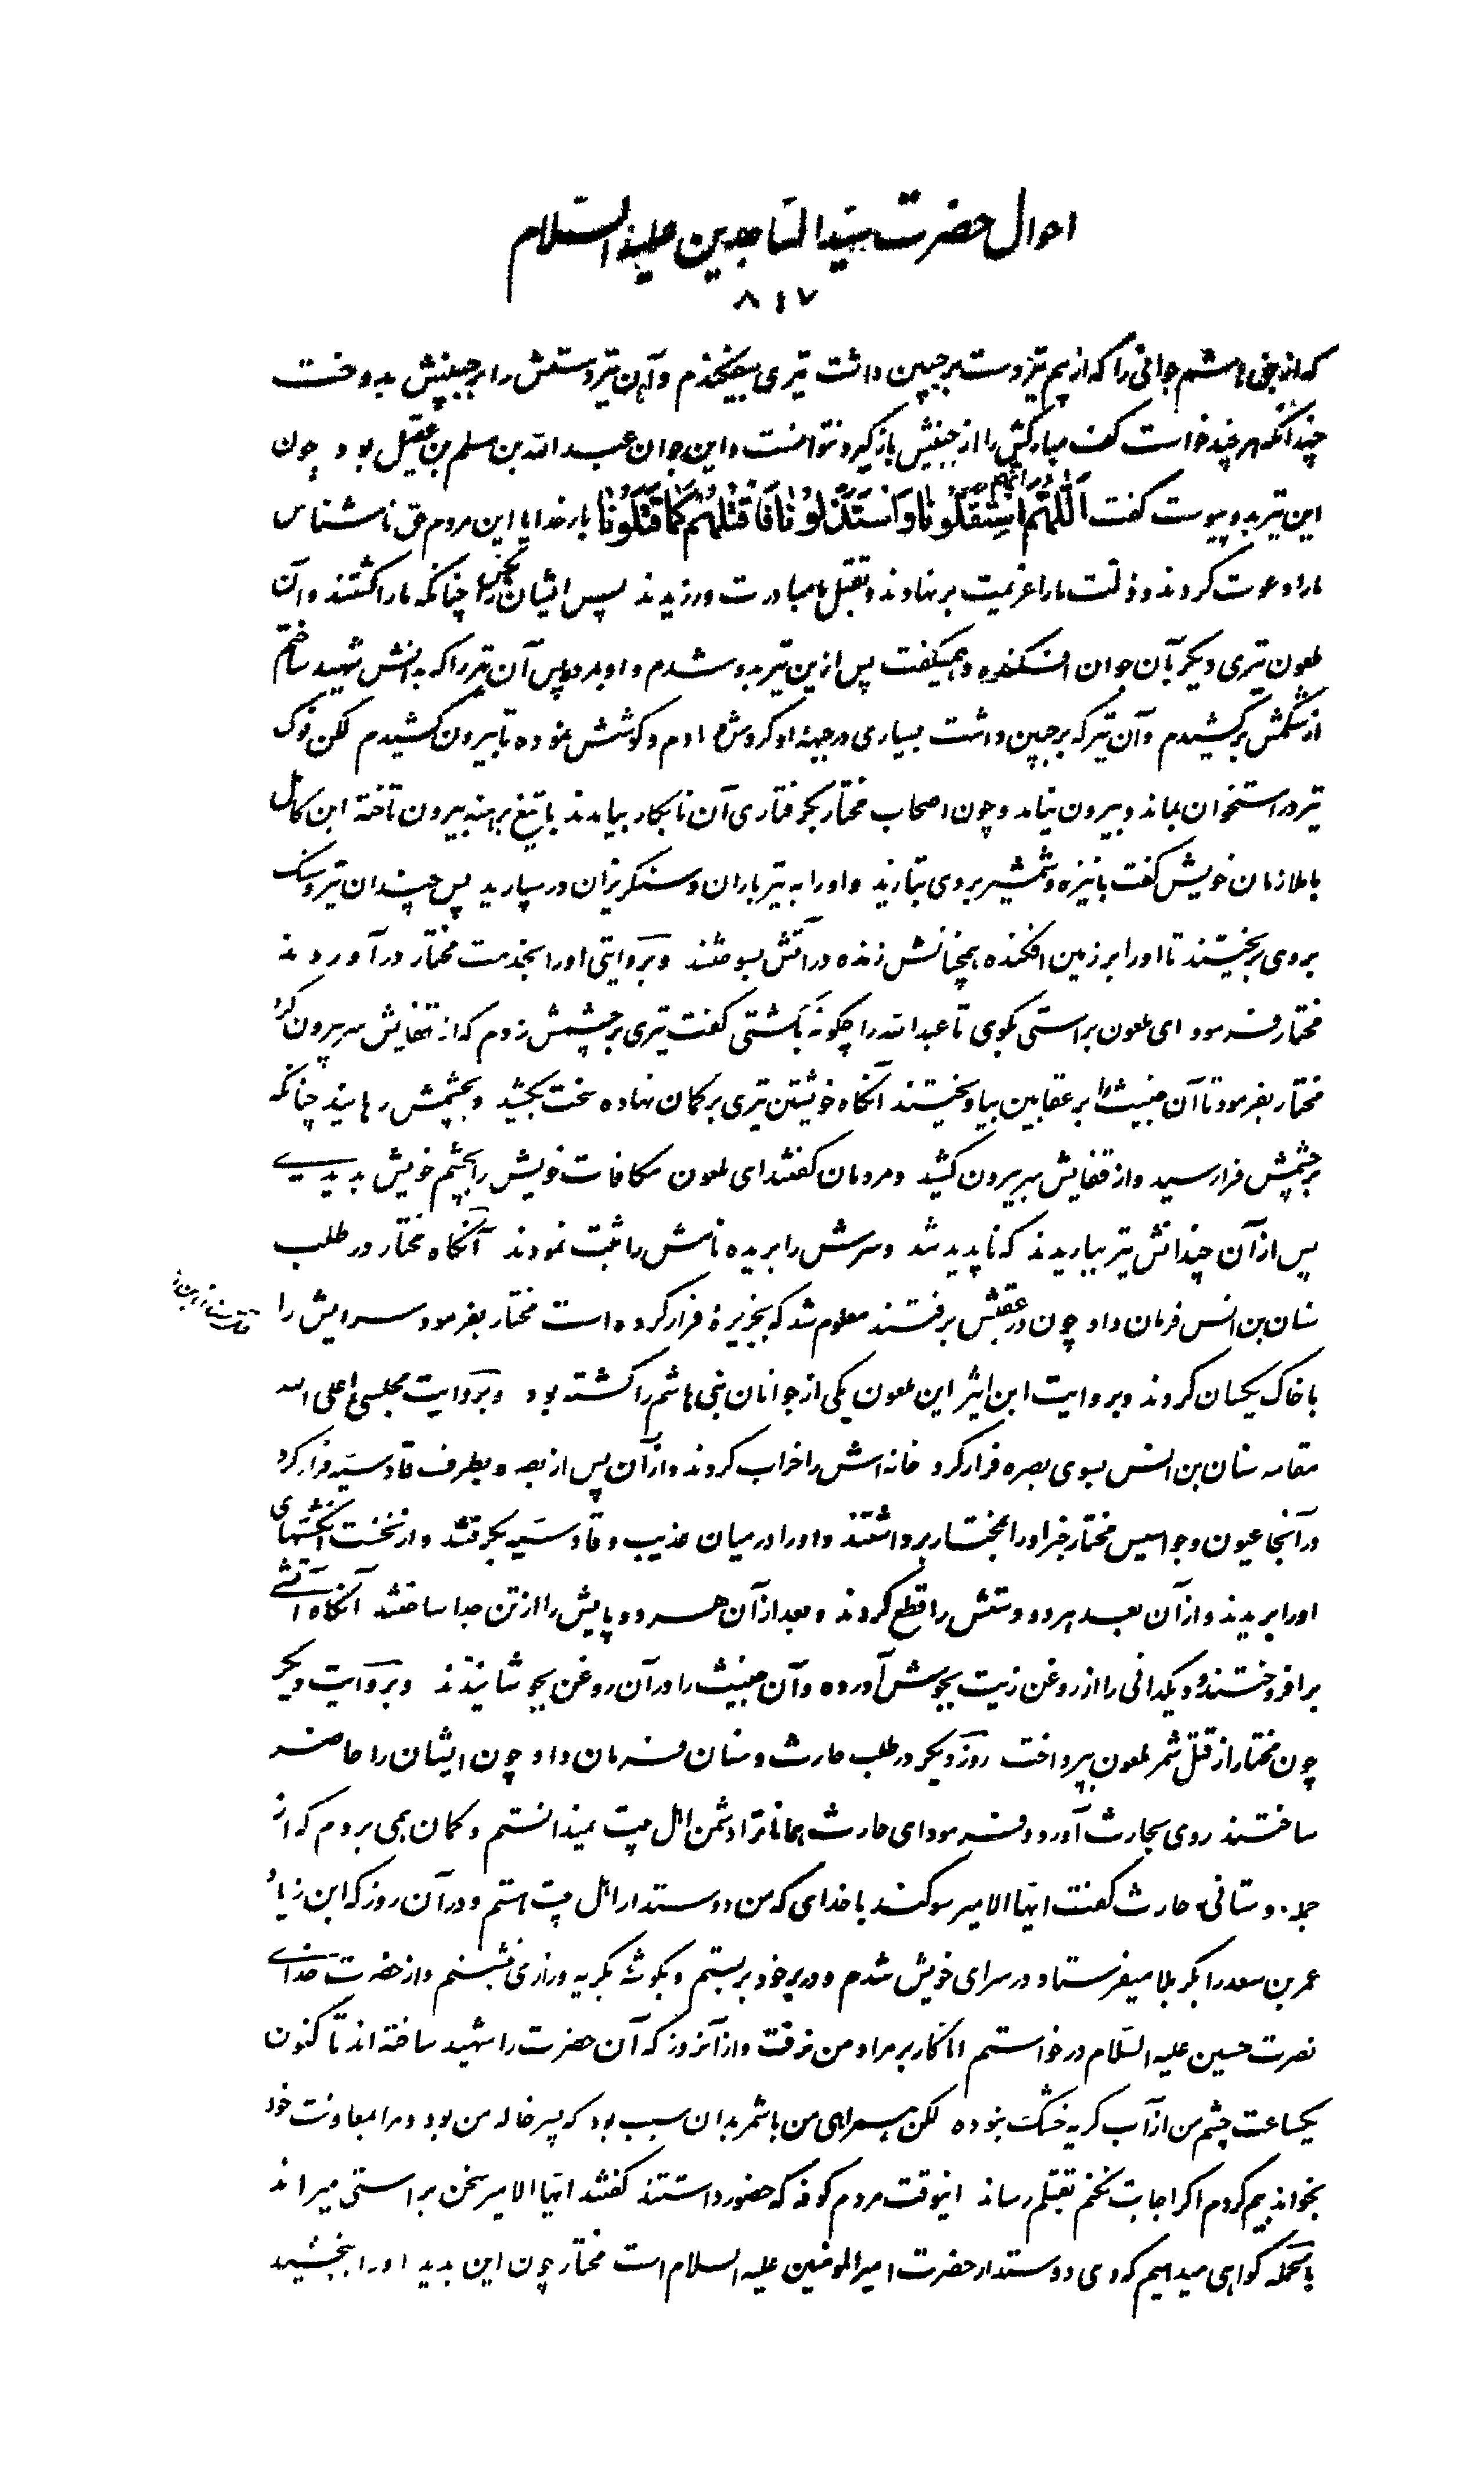 احوال حضرت سیّد السّاجدین علیه السّلام
۸۱۷
که از بنی هاشم جوانی را که از بیم تیر دست بر جبین داشت تیری بیفکندم و آن تیر دستش را بر جبینش بدوخت
چندانکه هر چند خواست کف مبارکش را از جبینش باز گیرد نتوانست و این جوان عبد الله بن مسلم بن عقیل بود چون
این تیر بدو پیوست گفت اَللّهُمَّ اِنَّهُم اسْتَقَلُّونا وَاسْتَذَلُّونا فَاقْتُلْهُم کَما قَتَلُونا بار خدایا این مردم حق ناشناس
ما را دعوت کردند و ذلت ما را عزیمت بر نهادند و بقتل ما مبادرت ورزیدند پس ایشان را بکش چنانکه ما را کشتند و آن
ملعون تیری دیگر بآن جوان افکنده و همیگفت پس ازین تیر بدو شدم و او مرده پس آن تیر را که بدانش شهید ساختم
از شکمش بر کشیدم و آن تیر که بر جبین داشت بسیاری در جبهه او گردش دادم و کوشش نموده تا بیرون کشیدم لکن نوک
تیر در استخوان بماند و بیرون نیامد و چون اصحاب مختار بگرفتاری آن نابکار بیامدند با تیغ برهنه بیرون تاخته ابن کامل
با ملازمان خویش گفت با نیزه و شمشیر بر وی نتازید و او را به تیر باران و سنگریزان در سپارید پس چندان تیر و سنک
بر وی بریختند تا او را بر زمین افکنده همچنانش زنده در آتش بسوختند و بروایتی او را بخدمت مختار در آوردند
مختار فرمود ای ملعون براستی بگوی تا عبد الله را چگونه بکشتی گفت تیری بر چشمش زدم که از قفایش سر بیرون کرد
مختار بفرمود تا آن خبیث را بر عقابین بیاویختند آنگاه خویشتن تیری بر کمان نهاده سخت بکشید و بچشمش رهانید چنانکه
بر چشمش فرا رسید و از قفایش سر بیرون کشید و مردمان گفتند ای ملعون مکافات خویش را بچشم خویش بدیدی
پس از آن چندانش تیر بباریدند که ناپدید شد و سرش را بریده نامش را ثبت نمودند آنگاه مختار در طلب
سنان بن انس فرمان داد چون در عقبش برفتند معلوم شد که بجزیره فرار کرده است مختار بفرمود سرایش را
با خاک یکسان کردند و بروایت ابن اثیر این ملعون یکی از جوانان بنی هاشم را کشته بود و بروایت مجلسی اعلی الله
مقامه سنان بن انس بسوی بصره فرار کرد خانه اش را خراب کردند و از آن پس از بصره بطرف قادسیّه فرار کرد
در آنجا عیون و جواسیس مختار خبر او را بمختار برداشتند و او را در میان عذیب و قادسیّه بگرفتند و از نخست انگشتهای
او را بریدند و از آن بعد هر دو دستش را قطع کردند و بعد از آن هر دو پایش را از تن جدا ساختند آنگاه آتشی
برافروختند و دیگدانی را از روغن زیت بجوش آورده و آن خبیث را در آن روغن بجوشانیدند و بروایت دیگر
چون مختار از قتل شمر ملعون بپرداخت روز دیگر در طلب حارث و سنان فرمان داد چون ایشان را حاضر
ساختند روی بحارث آورد و فرمود ای حارث همانا ترا دشمن اهل بیت نمیدانستم و گمان همی بردم که از
جمله دوستانی حارث گفت ایّها الامیر سوگند با خدای که من دوستدار اهل بیت هستم و در آن روز که ابن زیاد
عمر بن سعد را بکربلا میفرستاد در سرای خویش شدم و در بر خود بربستم و بگوشه بگریه و زاری نشستم و از حضرت خدای
نصرت حسین علیه السّلام درخواستم امّا کار بر مراد من نرفت و از آنروز که آن حضرت را شهید ساخته اند تا کنون
یکساعت چشم من از آب گریه خشک نبوده لکن همراهی من با شمر بدان سبب بود که پسر خاله من بود و مرا بمعاونت خود
بخواند بیم کردم اگر اجابت نکنم بقتلم رساند اینوقت مردم کوفه که حضور داشتند گفتند ایّها الامیر سخن براستی میراند
با جمله گواهی میدهیم که وی دوستدار حضرت امیر المؤمنین علیه السلام است مختار چون این بدید او را ببخشید